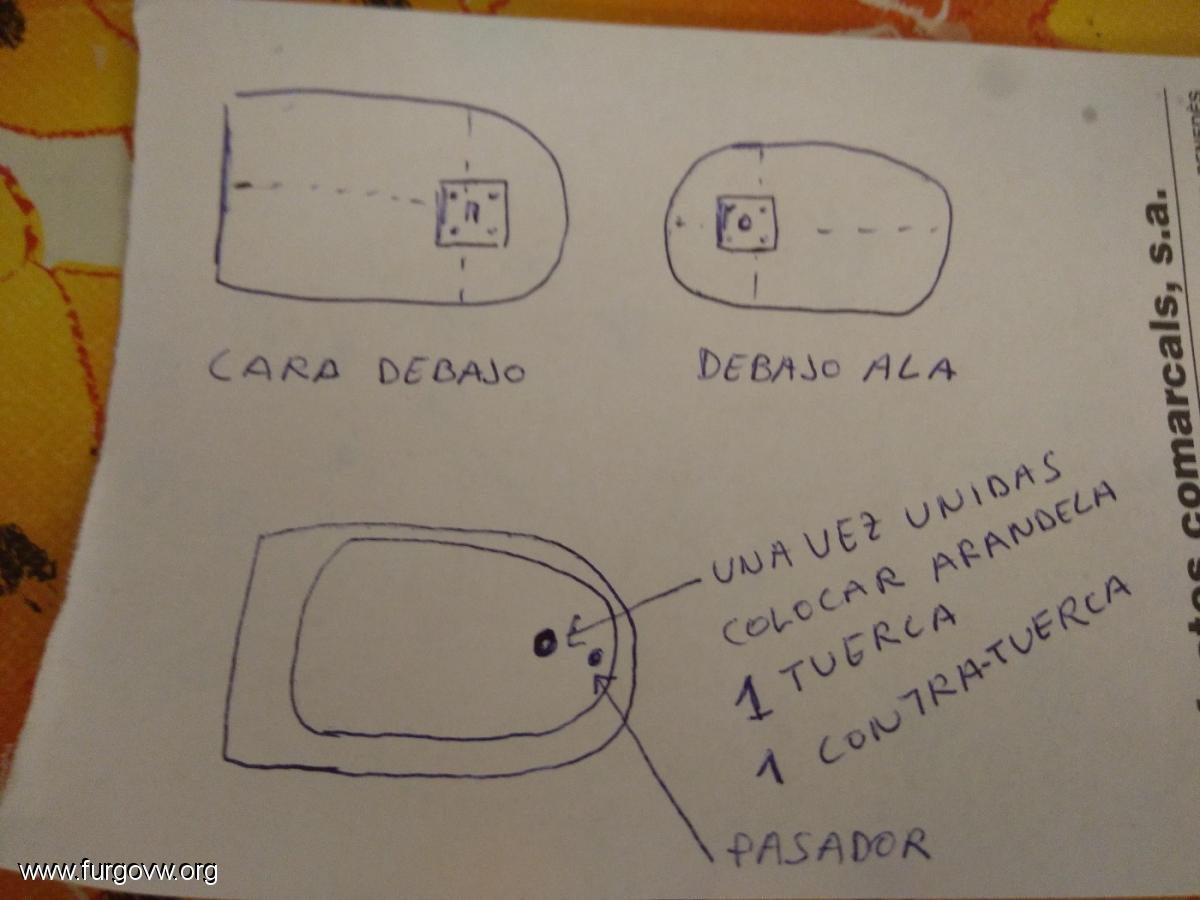 CARA DEBAJO
DEBAJO ALA
UNA VEZ UNIDAS
COLOCAR ARANDELA
1 TUERCA
1 CONTRA-TUERCA
PASADOR
comarcals, s.a.
www.furgovw.org